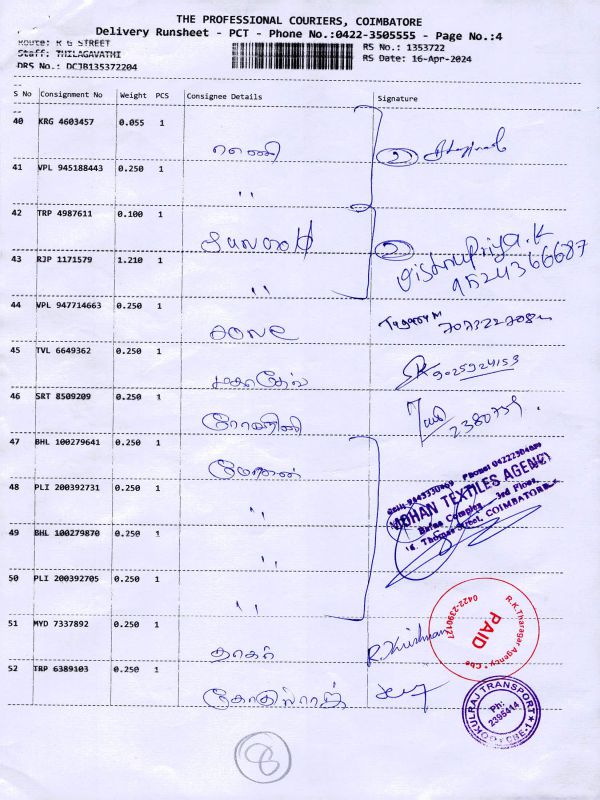 THE PROFESSIONAL COURIERS, COIMBATORE
Delivery Runsheet - PCT - Phone No.:0422-3505555 - Page No.:4
Route: R G STREET
Staff: THILAGAVATHI
DRS No.: DCJB135372204
RS No.: 1353722
RS Date: 16-Apr-2024
S No Consignment No Weight PCS Consignee Details Signature
40 KRG 4603457 0.055 1
2
41 VPL 945188443 0.250 1
"
42 TRP 4987611 0.100 1
2 VishnuPriya.K
43 RJP 1171579 1.210 1
9524366687
"
44 VPL 947714663 0.250 1
45 TVL 6649362 0.250 1
9025924153
மகாதேவ்
46 SRT 8509209 0.250 1
ரோகிணி
47 BHL 100279641 0.250 1
மோகன்
48 PLI 200392731 0.250 1
"
MOHAN TEXTILES AGENCY
3rd Floor,
14, Thomas Street, COIMBATORE
49 BHL 100279870 0.250 1
"
50 PLI 200392705 0.250 1
"
51 MYD 7337892 0.250 1
தாகர்
R.Krishnan
R.K.Tharagar Agency - Cbe
PAID
0422-2390127
52 TRP 6389103 0.250 1
கோகுல்ராஜ்
GOKULRAJ TRANSPORT
Ph:
2395414
CBE-1
8